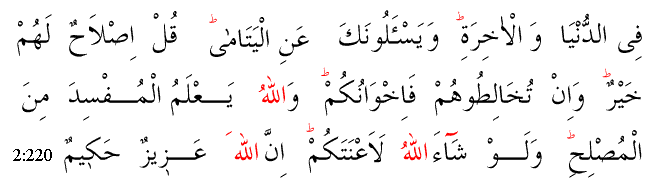 فِى الدُّنْيَا وَ الْاٰخِرَةِ ۗ وَيَسْـَٔلُونَكَ عَنِ الْيَتَامٰى ۗ قُلْ اِصْلَاحٌ لَهُمْ
خَيْرٌ ۗ وَاِنْ تُخَالِطُوهُمْ فَاِخْوَانُكُمْ ۗ وَاللّٰهُ يَعْلَمُ الْمُفْسِدَ مِنَ
الْمُصْلِحِ ۗ وَلَوْ شَٓاءَ اللّٰهُ لَاَعْنَتَكُمْ ۗ اِنَّ اللّٰهَ عَزِيزٌ حَكِيمٌ 2:220